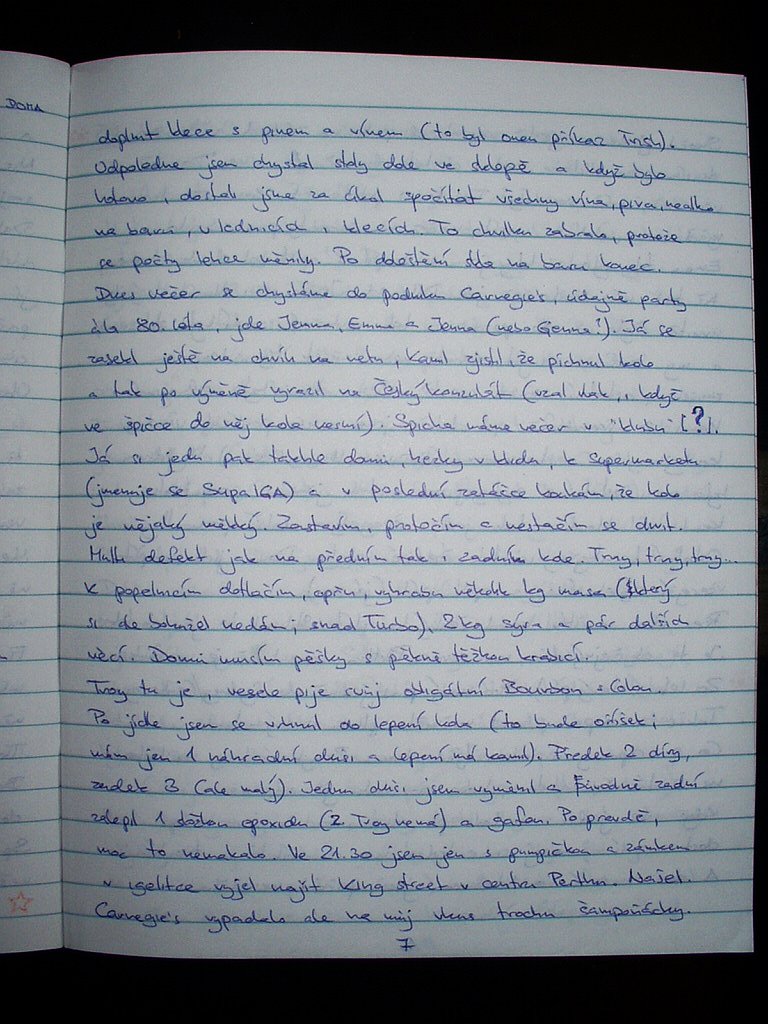 DOMA
doplnit klece s pivem a vínem (to byl onen příkaz Trish).
Odpoledne jsem chystal stoly dole ve sklepě a když bylo
hotovo, dostali jsme za úkol spočítat všechny vína, piva, nealko
na baru, v lednicích i klecích. To chvilku zabralo, protože
se počty lehce měnily. Po doleštění skla na baru konec.
Dnes večer se chystáme do podniku Carnegie's, údajně party
á la 80. léta, jde Jenna, Emma a Jenna (nebo Genna?). Já se
zasekl ještě na chvíli na netu, Kamil zjistil, že píchnul kolo
a tak po výměně vyrazil na Český konzulát (vzal vlak, i když
ve špičce do něj kola nesmí). Spicha máme večer v "klubu" [?].
Já si jedu pak takhle domů, hezky v klidu, k supermarketu
(jmenuje se SupaIGA) a v poslední zatáčce koukám, že kolo
je nějaký měkký. Zastavím, protočím a nestačím se divit.
Multi defekt jak na předním tak i zadním kole. Trny, trny, trny...
K popelnicím dotlačím, opřu, vyhrabu několik kg masa (který
si ale bohužel nedám; snad Turbo), 2kg sýra a pár dalších
věcí. Domů musím pěšky s pěkně těžkou krabicí.
Troy tu je, vesele pije svůj obligátní Bourbon s Colou.
Po jídle jsem se vrhnul do lepení kola (to bude oříšek;
mám jen 1 náhradní duši a lepení má Kamil). Předek 2 díry,
zadek 3 (ale malý). Jednu duši jsem vyměnil a původně zadní
zalepil 1 složkou epoxidu (2. Troy nemá) a gafou. Po pravdě,
moc to nemakalo. Ve 21.30 jsem jen s pumpičkou a zámkem
v igelitce vyjel najít King street v centru Perthu. Našel.
Carnegie's vypadalo ale na můj vkus trochu šampóňácky.
7